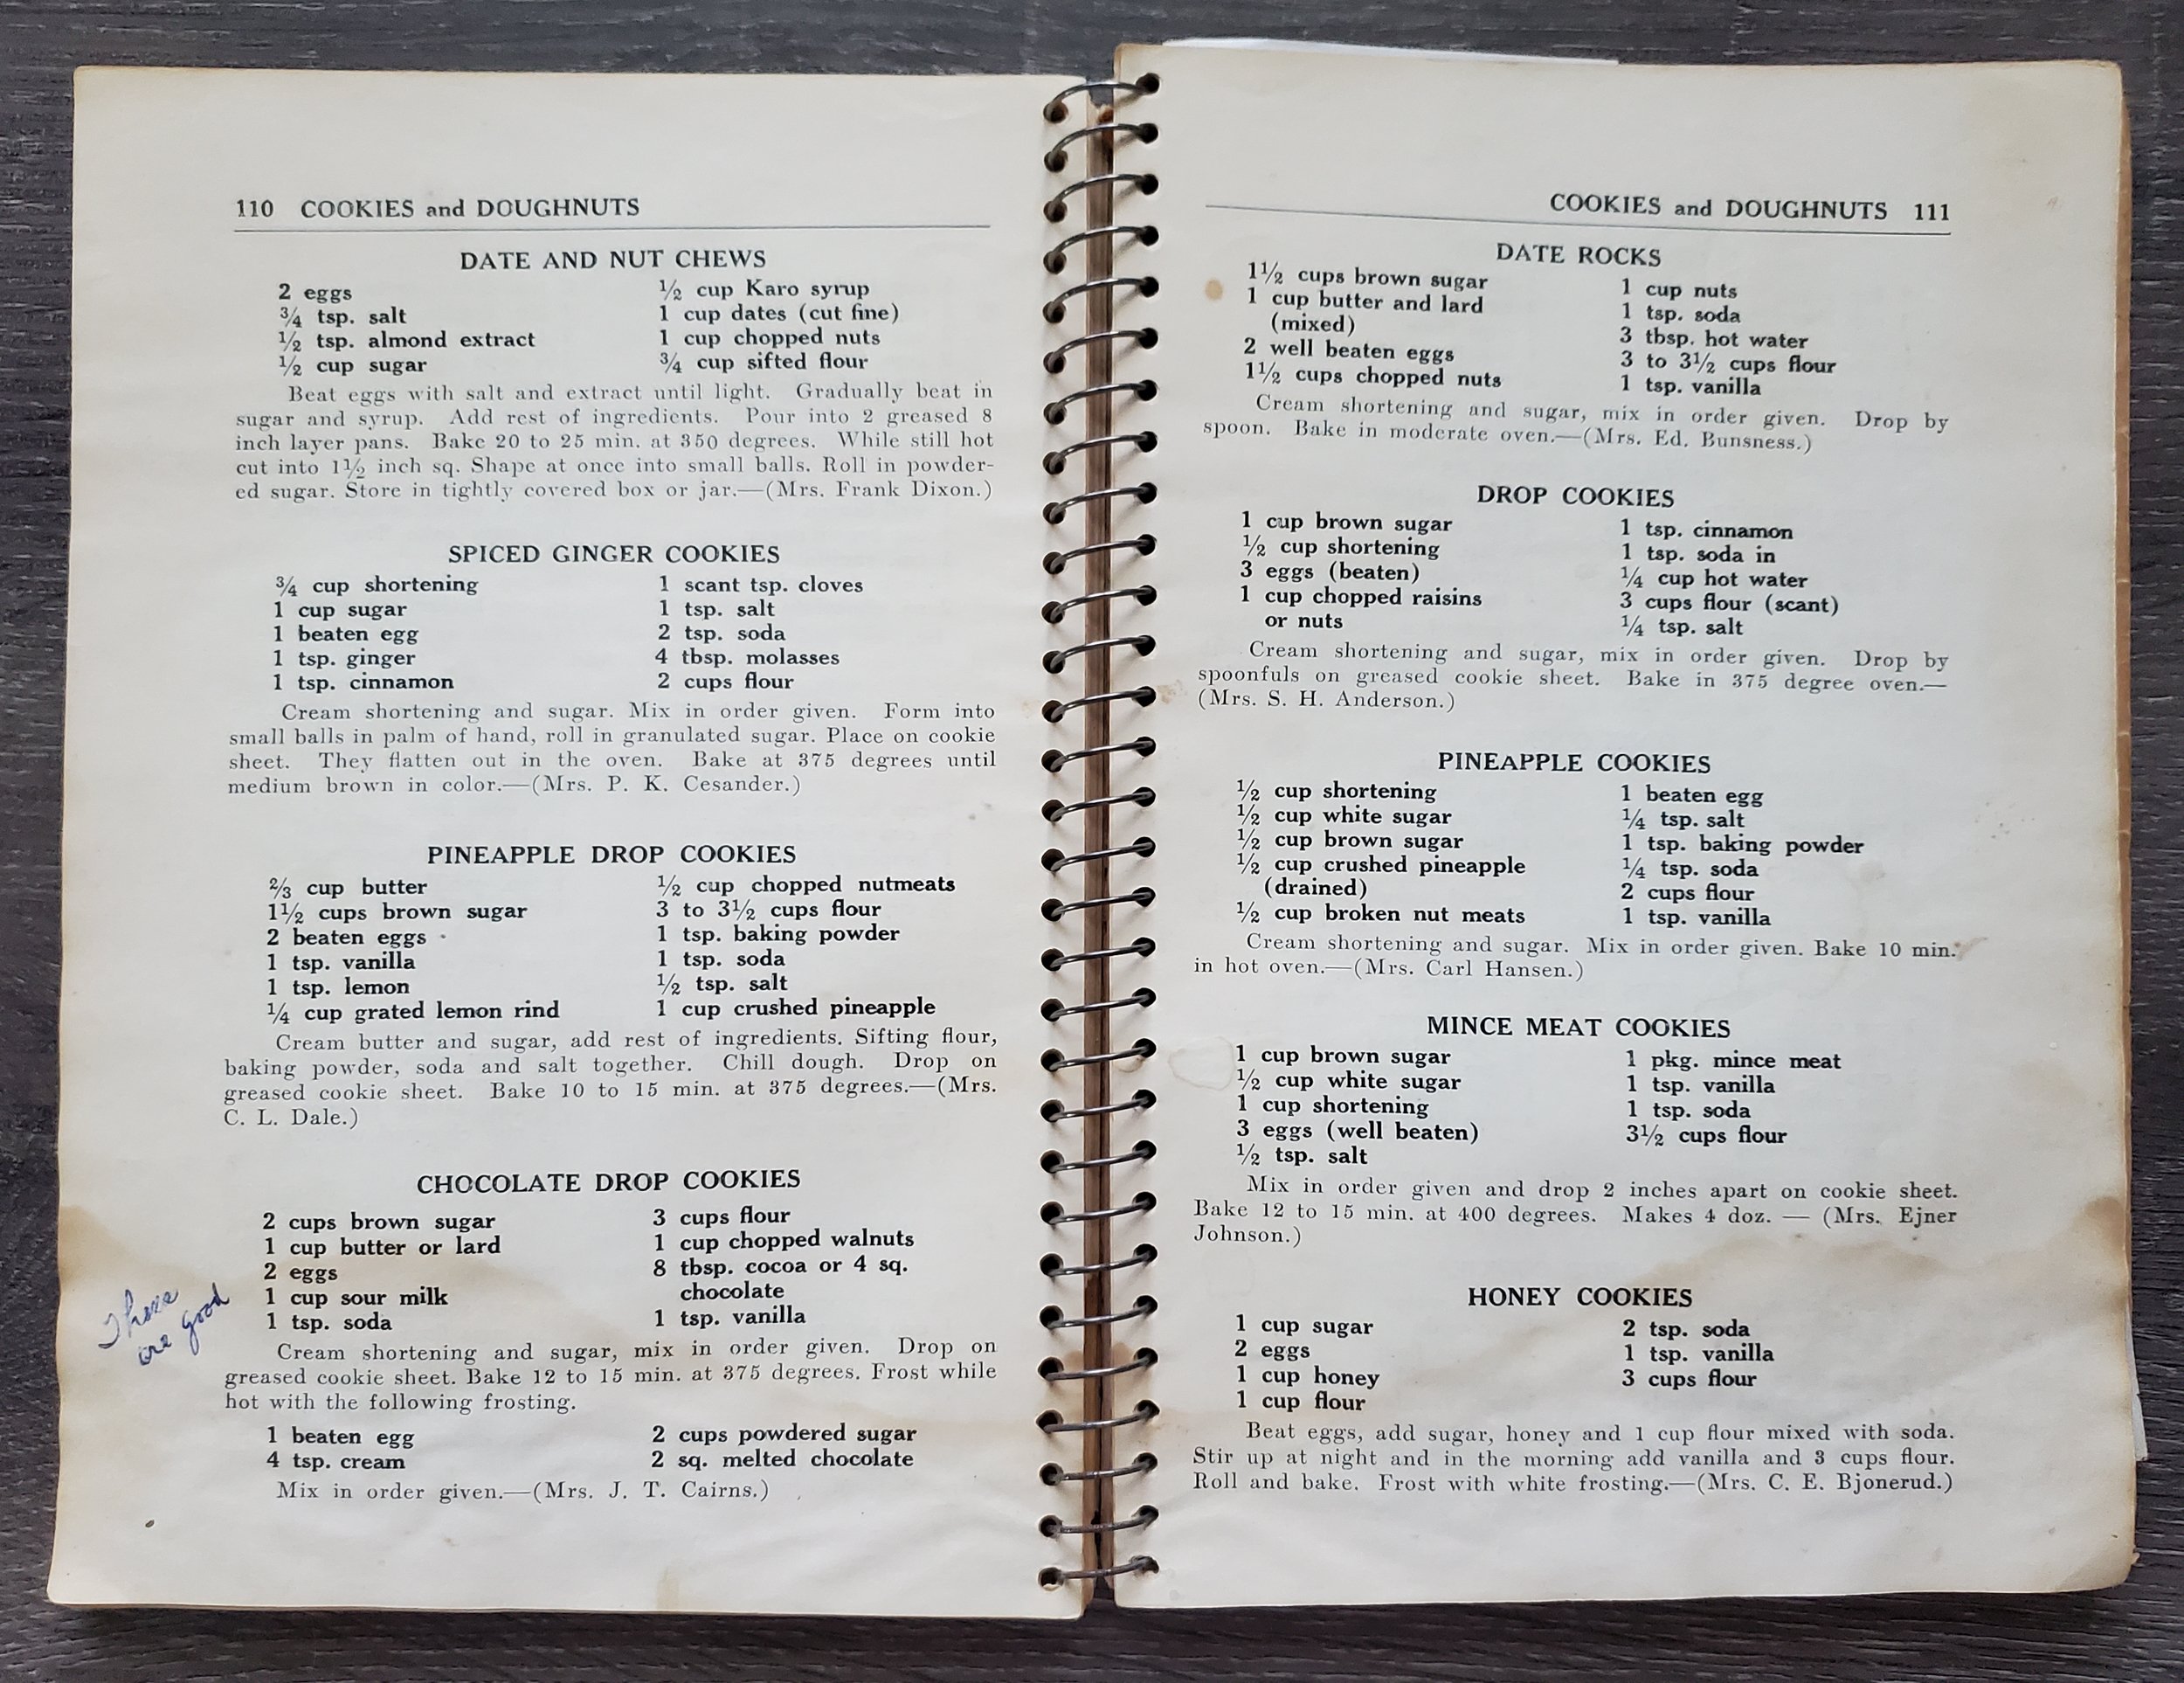 110 COOKIES and DOUGHNUTS
DATE AND NUT CHEWS
2 eggs
¾ tsp. salt
½ tsp. almond extract
½ cup sugar
½ cup Karo syrup
1 cup dates (cut fine)
1 cup chopped nuts
¾ cup sifted flour
Beat eggs with salt and extract until light. Gradually beat in
sugar and syrup. Add rest of ingredients. Pour into 2 greased 8
inch layer pans. Bake 20 to 25 min. at 350 degrees. While still hot
cut into 1½ inch sq. Shape at once into small balls. Roll in powder-
ed sugar. Store in tightly covered box or jar.—(Mrs. Frank Dixon.)
SPICED GINGER COOKIES
¾ cup shortening
1 cup sugar
1 beaten egg
1 tsp. ginger
1 tsp. cinnamon
1 scant tsp. cloves
1 tsp. salt
2 tsp. soda
4 tbsp. molasses
2 cups flour
Cream shortening and sugar. Mix in order given. Form into
small balls in palm of hand, roll in granulated sugar. Place on cookie
sheet. They flatten out in the oven. Bake at 375 degrees until
medium brown in color.—(Mrs. P. K. Cesander.)
PINEAPPLE DROP COOKIES
⅔ cup butter
1½ cups brown sugar
2 beaten eggs
1 tsp. vanilla
1 tsp. lemon
¼ cup grated lemon rind
½ cup chopped nutmeats
3 to 3½ cups flour
1 tsp. baking powder
1 tsp. soda
½ tsp. salt
1 cup crushed pineapple
Cream butter and sugar, add rest of ingredients. Sifting flour,
baking powder, soda and salt together. Chill dough. Drop on
greased cookie sheet. Bake 10 to 15 min. at 375 degrees.—(Mrs.
C. L. Dale.)
CHOCOLATE DROP COOKIES
2 cups brown sugar
1 cup butter or lard
2 eggs
1 cup sour milk
1 tsp. soda
3 cups flour
1 cup chopped walnuts
8 tbsp. cocoa or 4 sq.
chocolate
1 tsp. vanilla
These
are good
Cream shortening and sugar, mix in order given. Drop on
greased cookie sheet. Bake 12 to 15 min. at 375 degrees. Frost while
hot with the following frosting.
1 beaten egg
4 tsp. cream
2 cups powdered sugar
2 sq. melted chocolate
Mix in order given.—(Mrs. J. T. Cairns.)
COOKIES and DOUGHNUTS 111
DATE ROCKS
1½ cups brown sugar
1 cup butter and lard
(mixed)
2 well beaten eggs
1½ cups chopped nuts
1 cup nuts
1 tsp. soda
3 tbsp. hot water
3 to 3½ cups flour
1 tsp. vanilla
Cream shortening and sugar, mix in order given. Drop by
spoon. Bake in moderate oven.—(Mrs. Ed. Bunsness.)
DROP COOKIES
1 cup brown sugar
½ cup shortening
3 eggs (beaten)
1 cup chopped raisins
or nuts
1 tsp. cinnamon
1 tsp. soda in
¼ cup hot water
3 cups flour (scant)
¼ tsp. salt
Cream shortening and sugar, mix in order given. Drop by
spoonfuls on greased cookie sheet. Bake in 375 degree oven.—
(Mrs. S. H. Anderson.)
PINEAPPLE COOKIES
½ cup shortening
½ cup white sugar
½ cup brown sugar
½ cup crushed pineapple
(drained)
½ cup broken nut meats
1 beaten egg
¼ tsp. salt
1 tsp. baking powder
¼ tsp. soda
2 cups flour
1 tsp. vanilla
Cream shortening and sugar. Mix in order given. Bake 10 min.
in hot oven.—(Mrs. Carl Hansen.)
MINCE MEAT COOKIES
1 cup brown sugar
½ cup white sugar
1 cup shortening
3 eggs (well beaten)
½ tsp. salt
1 pkg. mince meat
1 tsp. vanilla
1 tsp. soda
3½ cups flour
Mix in order given and drop 2 inches apart on cookie sheet.
Bake 12 to 15 min. at 400 degrees. Makes 4 doz. — (Mrs. Ejner
Johnson.)
HONEY COOKIES
1 cup sugar
2 eggs
1 cup honey
1 cup flour
2 tsp. soda
1 tsp. vanilla
3 cups flour
Beat eggs, add sugar, honey and 1 cup flour mixed with soda.
Stir up at night and in the morning add vanilla and 3 cups flour.
Roll and bake. Frost with white frosting.—(Mrs. C. E. Bjonerud.)